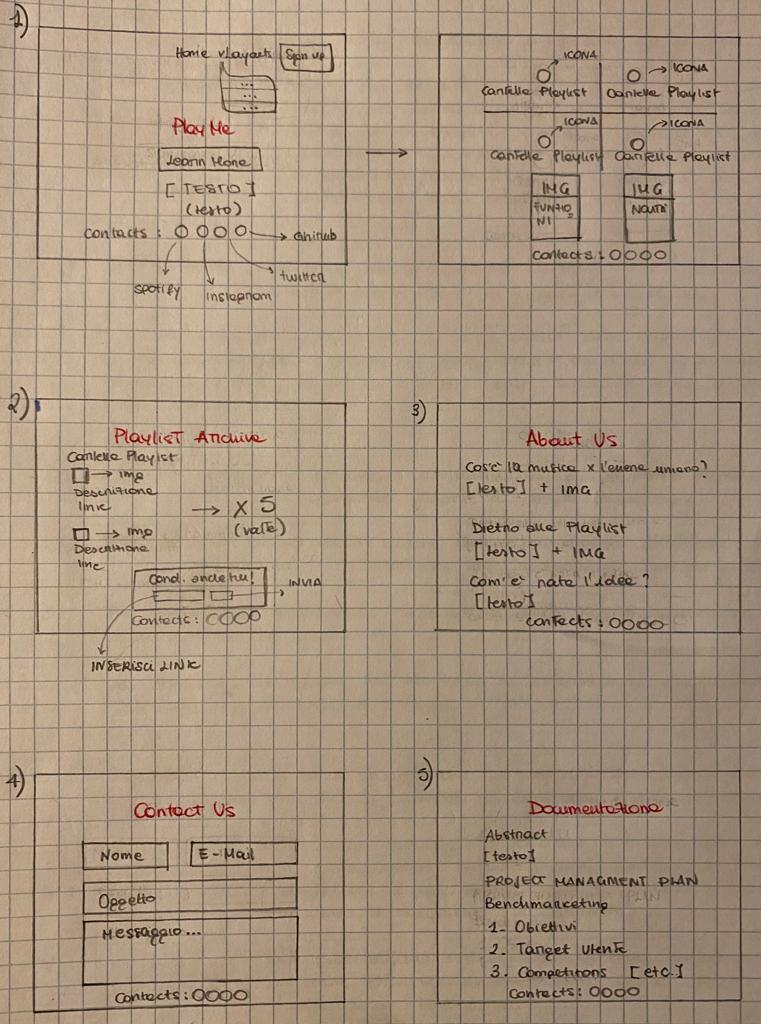 1)
Home vLayouts Sign up
Play Me
Learn More
[TESTO]
(testo)
contacts : OOOO → GhiHub
Spotify instagram twitter
ICONA
→ ICONA
Cartelle Playlist Cartelle Playlist
ICONA
→ ICONA
Cartelle Playlist Cartelle Playlist
IMG IMG
FUNZIO
NI
Novità
Contacts : OOOO
2)
Playlist Archive
Cartelle Playlist
→ img
Descrizione
link
→ X 5
(volte)
→ img
Descrizione
link
Cond. anche tu!
INVIA
Contacts : OOOO
INSERISCI LINK
3)
About Us
Cos'è la musica x l'essere umano?
[testo] + IMG
Dietro alle Playlist
[testo] + IMG
Com'è nata l'idea?
[testo]
contacts : OOOO
4)
Contact Us
Nome E-Mail
Oggetto
Messaggio...
Contacts : OOOO
5)
Documentazione
Abstract
[testo]
PROJECT MANAGMENT PLAN
Benchmarketing
1- Obiettivi
2. Target utente
3. Competitors [etc.]
Contacts: OOOO